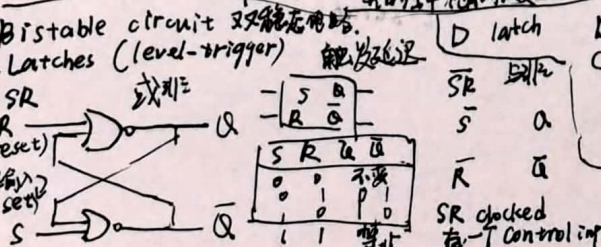 Bistable circuit 双稳态电路.
Latches (level-trigger) 触发延迟
SR 或非
R Q
eset)
输入
set)
S Q̅
S Q
R Q̅
S R Q Q̅
0 0 不变
0 1 0 1
1 0 1 0
1 1 禁止
D latch
S̅R̅ 与非
S̅ Q
R̅ Q̅
SR clocked
有一个 control in